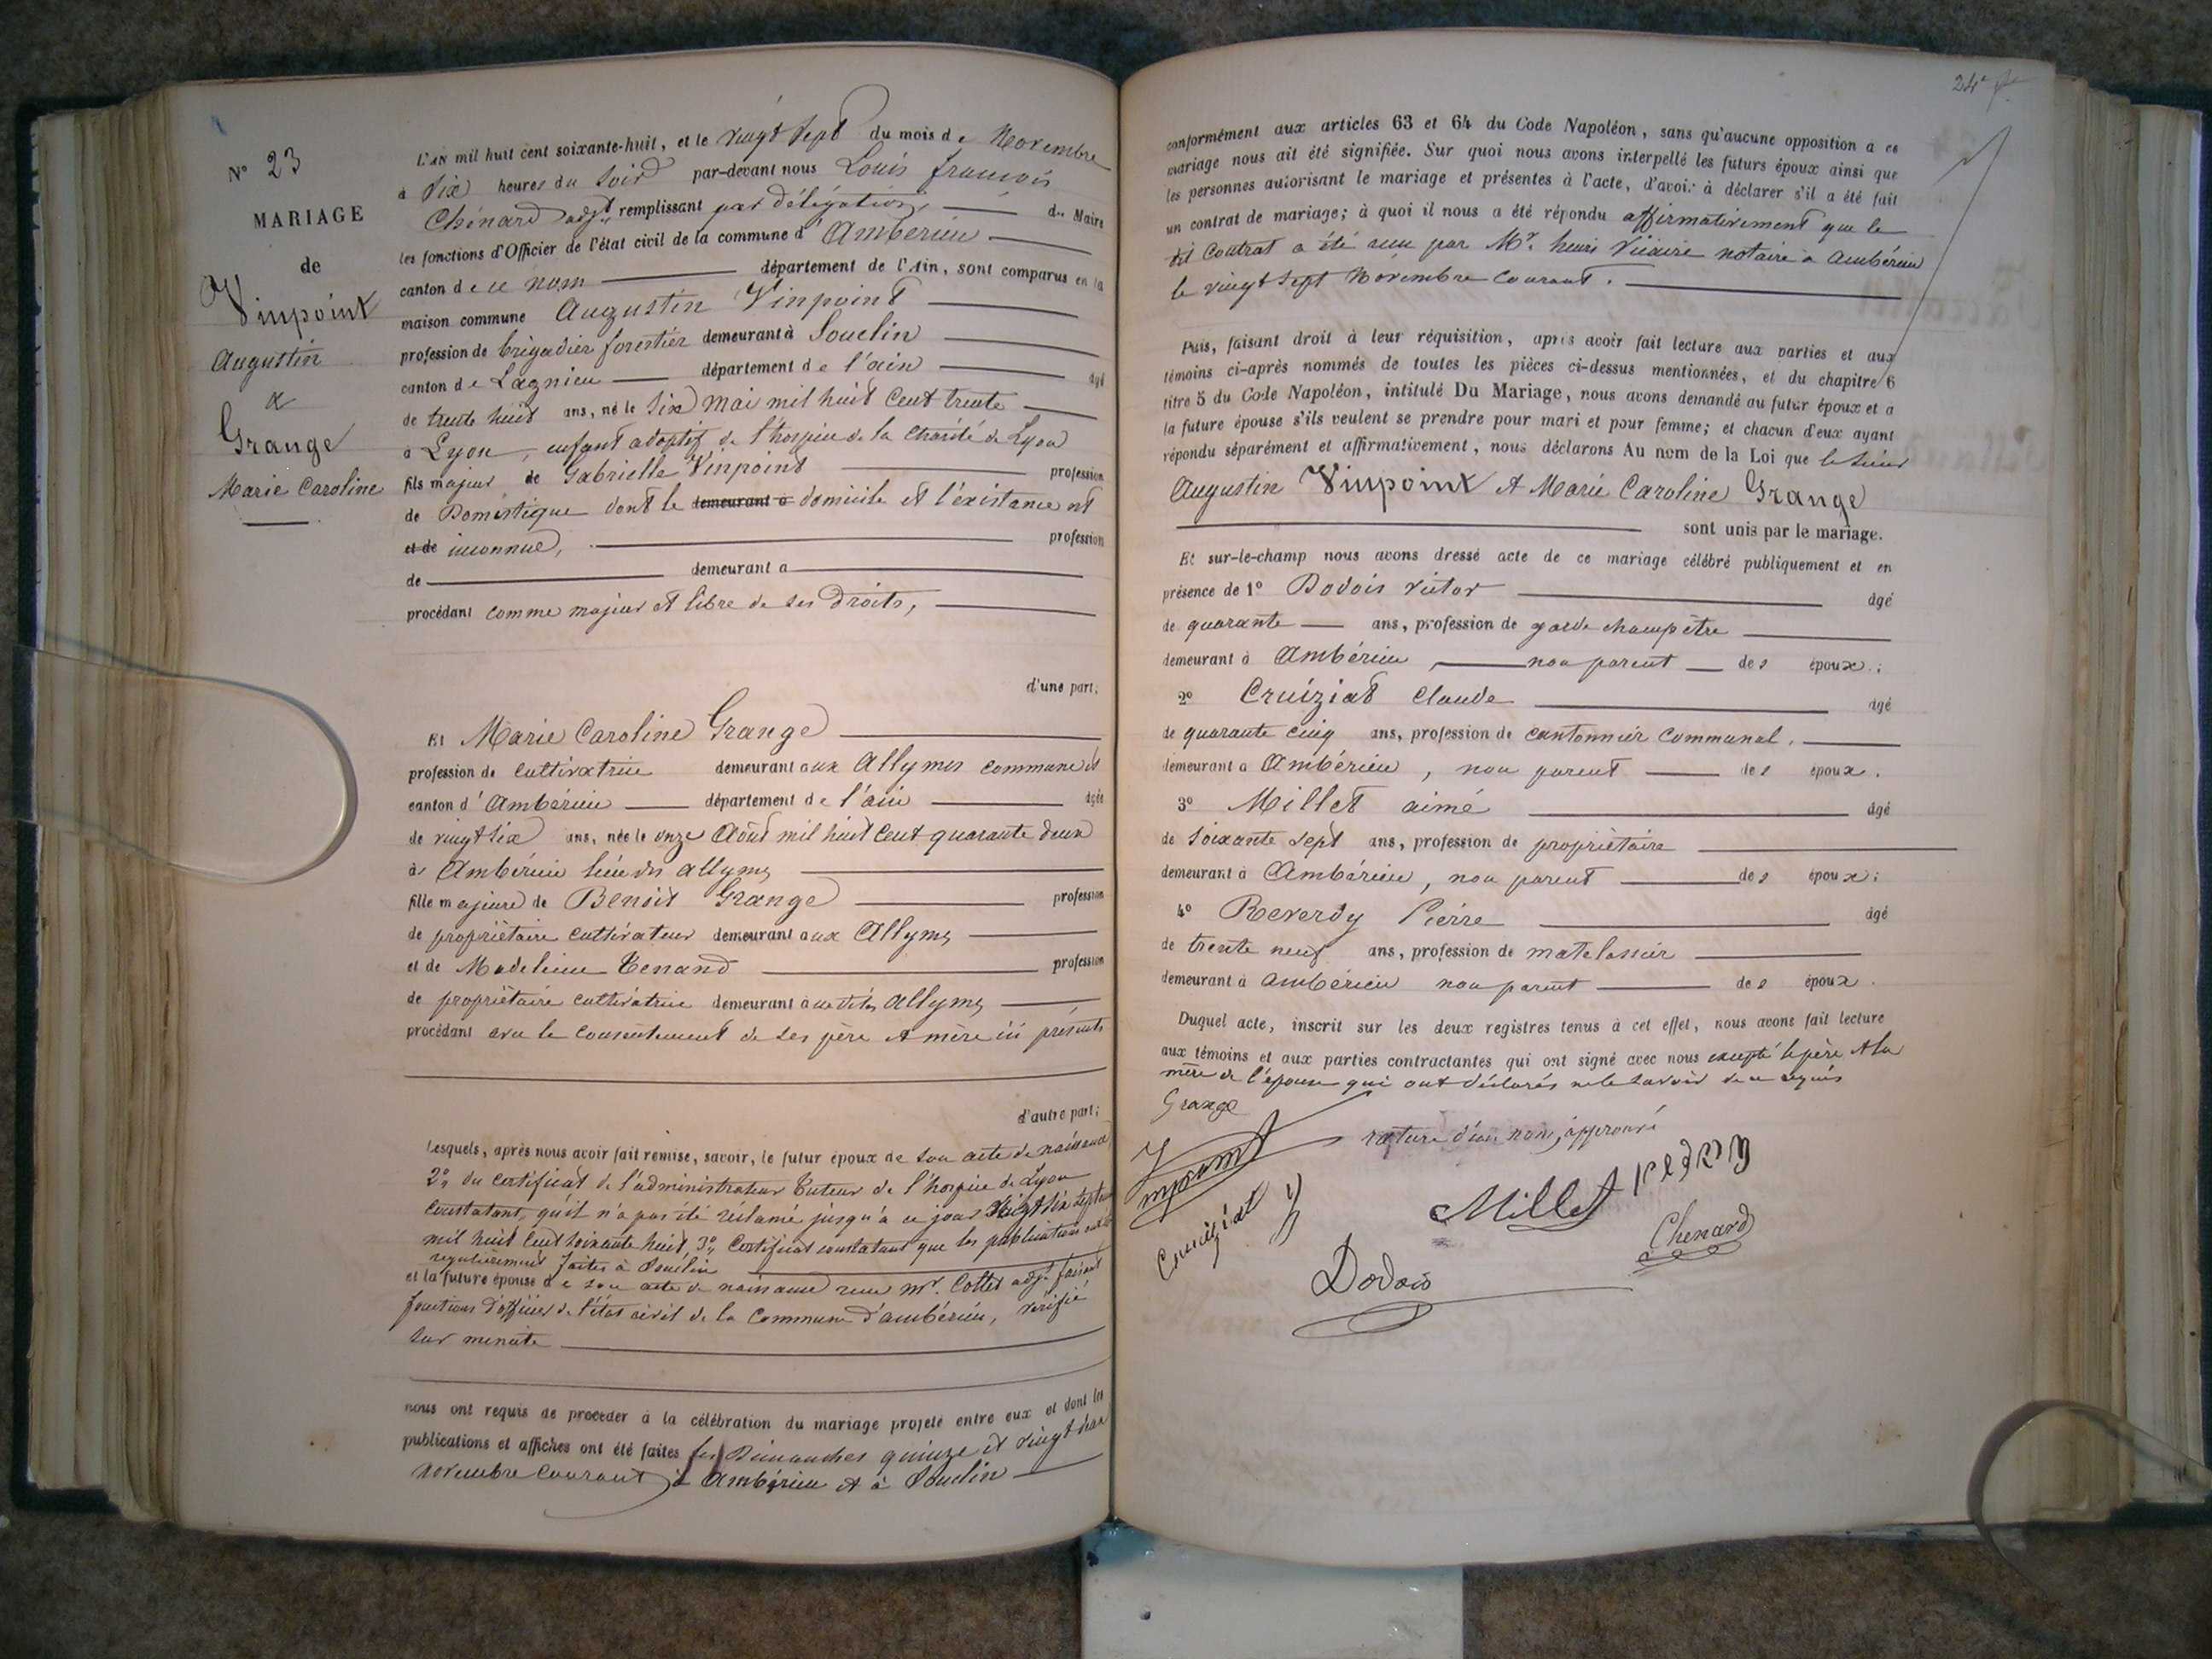 N° 23
MARIAGE
de
Vinpoint
Augustin
&
Grange
Marie Caroline
L'AN mil huit cent soixante-huit, et le vingt sept du mois de Novembre
à six heures du soir par-devant nous Louis françois
Chénard adjt remplissant par délégation du Maire
les fonctions d'Officier de l'état civil de la commune d'Ambérieu
canton de ce nom département de l'Ain, sont comparus en la
maison commune Augustin Vinpoint
profession de brigadier forestier demeurant à Souclin
canton de Lagnieu département de l'ain âgé
de trente huit ans, né le six mai mil huit cent trente
à Lyon, enfant adoptif de l'hospice de la Charité de Lyon
fils majeur de Gabrielle Vinpoint profession
de Domestique dont le demeurant à domicile et l'existance est
et de inconnue, profession
de demeurant à
procédant comme majeur et libre de ses droits,
d'une part;
Et Marie Caroline Grange
profession de cultivatrice demeurant aux Allymes commune et
canton d'Ambérieu département de l'ain âgée
de vingt six ans, née le onze Août mil huit cent quarante deux
à Ambérieu lieu des allymes
fille majeure de Benoit Grange profession
de propriétaire cultivateur demeurant aux Allymes
et de Madeleine Tenand profession
de propriétaire cultivatrice demeurant aux dites allymes
procédant avec le consentement de ses père et mère ici présents
d'autre part;
Lesquels, après nous avoir fait remise, savoir, le futur époux de son acte de naissance
2° du certificat de l'administrateur tuteur de l'hospice de Lyon
constatant, qu'il n'a pas été réclamé jusqu'à ce jour vingt six septembre
mil huit cent soixante huit, 3° certificat constatant que les publications ont été
regulièrement faites à Souclin
et la future épouse de son acte de naissance reçu mr. Collet adjt. faisant
fonctions d'officier de l'état civil de la Commune d'ambérieu, vérifié
sur minute
nous ont requis de procéder à la célébration du mariage projeté entre eux et dont les
publications et affiches ont été faites les Dimanches quinze et vingt deux
novembre courant à Ambérieu et à Souclin
24e
conformément aux articles 63 et 64 du Code Napoléon, sans qu'aucune opposition à ce
mariage nous ait été signifiée. Sur quoi nous avons interpellé les futurs époux ainsi que
les personnes autorisant le mariage et présentes à l'acte, d'avoir à déclarer s'il a été fait
un contrat de mariage; à quoi il nous a été répondu affirmativement que le
dit Contrat a été reçu par Mr. henri Vicaire notaire à Ambérieu
le vingt sept Novembre courant.
Puis, faisant droit à leur réquisition, après avoir fait lecture aux parties et aux
témoins ci-après nommés de toutes les pièces ci-dessus mentionnées, et du chapitre 6
titre 5 du Code Napoléon, intitulé Du Mariage, nous avons demandé au futur époux et à
la future épouse s'ils veulent se prendre pour mari et pour femme; et chacun d'eux ayant
répondu séparément et affirmativement, nous déclarons Au nom de la Loi que le sieur
Augustin Vinpoint et Marie Caroline Grange
sont unis par le mariage.
Et sur-le-champ nous avons dressé acte de ce mariage célébré publiquement et en
présence de 1° Dodois victor âgé
de quarante ans, profession de garde champêtre
demeurant à Ambérieu non parent des époux;
2° Cruiziat Claude âgé
de quarante cinq ans, profession de cantonnier communal,
demeurant à Ambérieu, non parent des époux.
3° Millet aimé âgé
de soixante sept ans, profession de propriétaire
demeurant à Ambérieu, non parent des époux;
4° Reverdy Pierre âgé
de trente neuf ans, profession de matelassier
demeurant à ambérieu non parent des époux.
Duquel acte, inscrit sur les deux registres tenus à cet effet, nous avons fait lecture
aux témoins et aux parties contractantes qui ont signé avec nous excepté le père et la
mère de l'épouse qui ont déclarés ne le savoir de ce requis
Grange
rature d'un nom, approuvé
Cruiziat
Millet
Chenard
Dodois